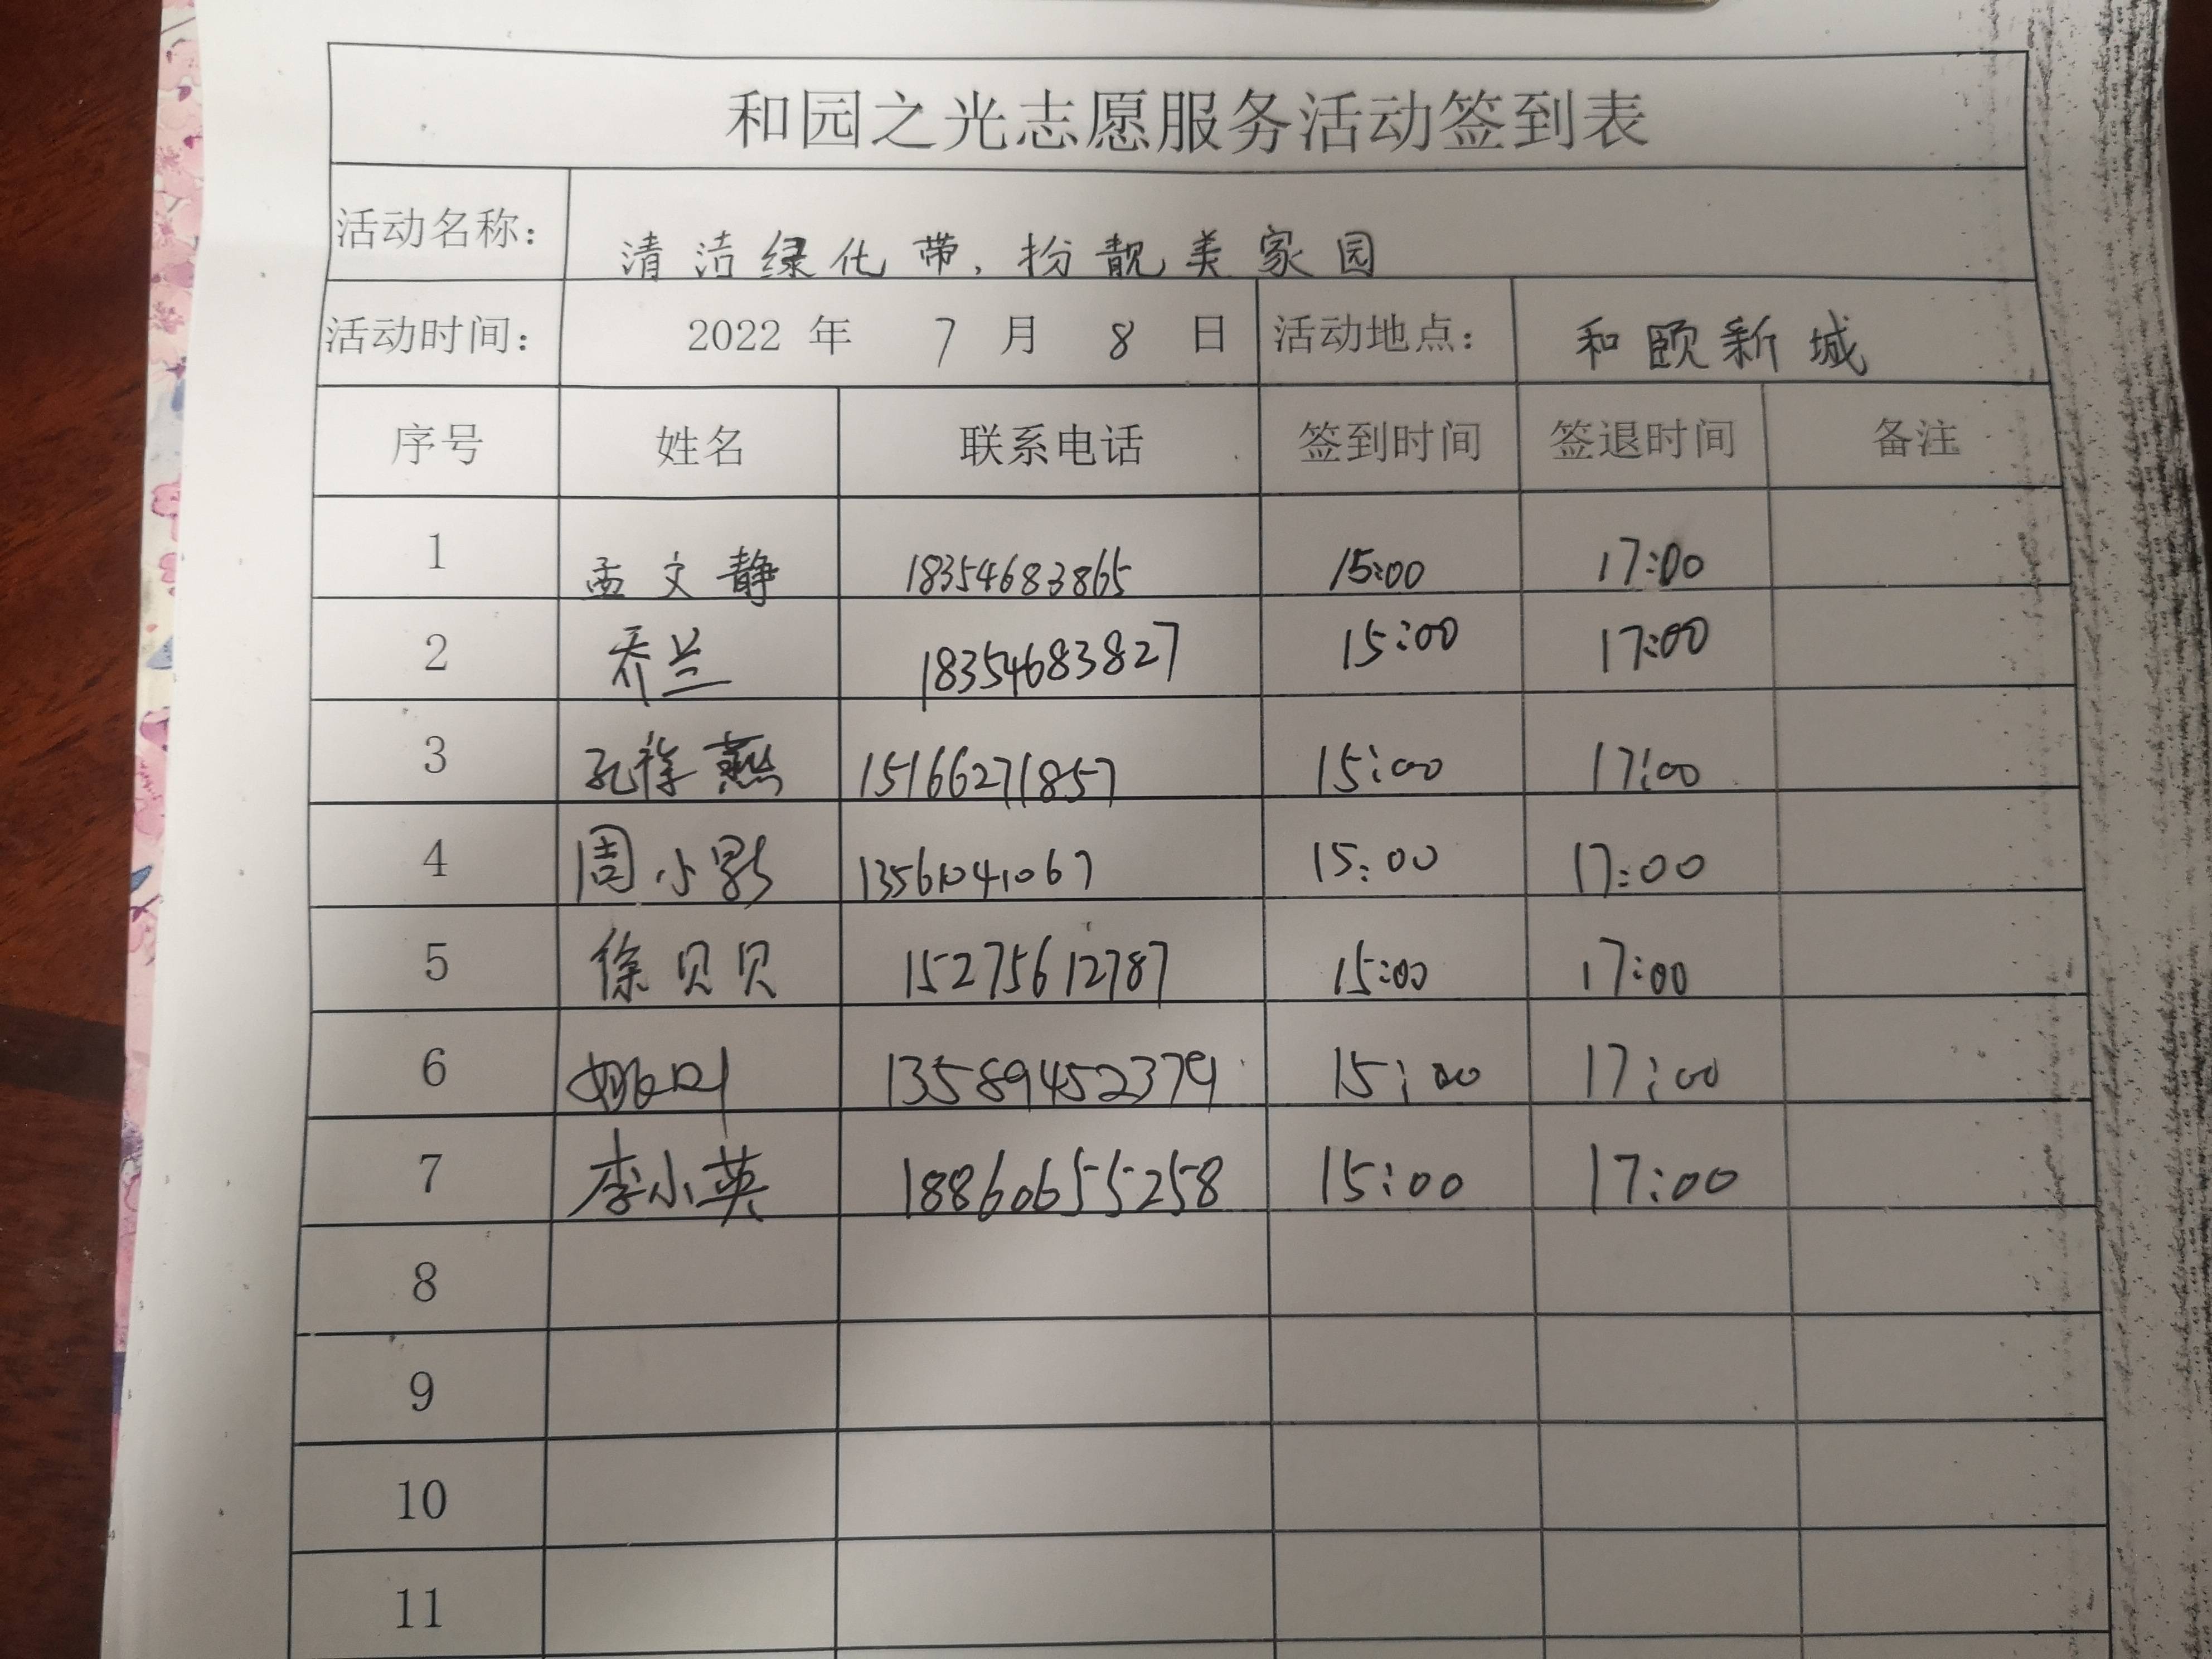 和园之光志愿服务活动签到表
活动名称： 清洁绿化带，扮靓美家园
活动时间： 2022 年 7 月 8 日 活动地点： 和颐新城
序号 姓名 联系电话 签到时间 签退时间 备注
1 孟文静 18354683865 15:00 17:00
2 乔兰 18354683827 15:00 17:00
3 孔祥燕 15166271857 15:00 17:00
4 周小影 13561041067 15:00 17:00
5 徐贝贝 15275612787 15:00 17:00
6 姚叶 13589452379 15:00 17:00
7 李小英 18860655258 15:00 17:00
8
9
10
11